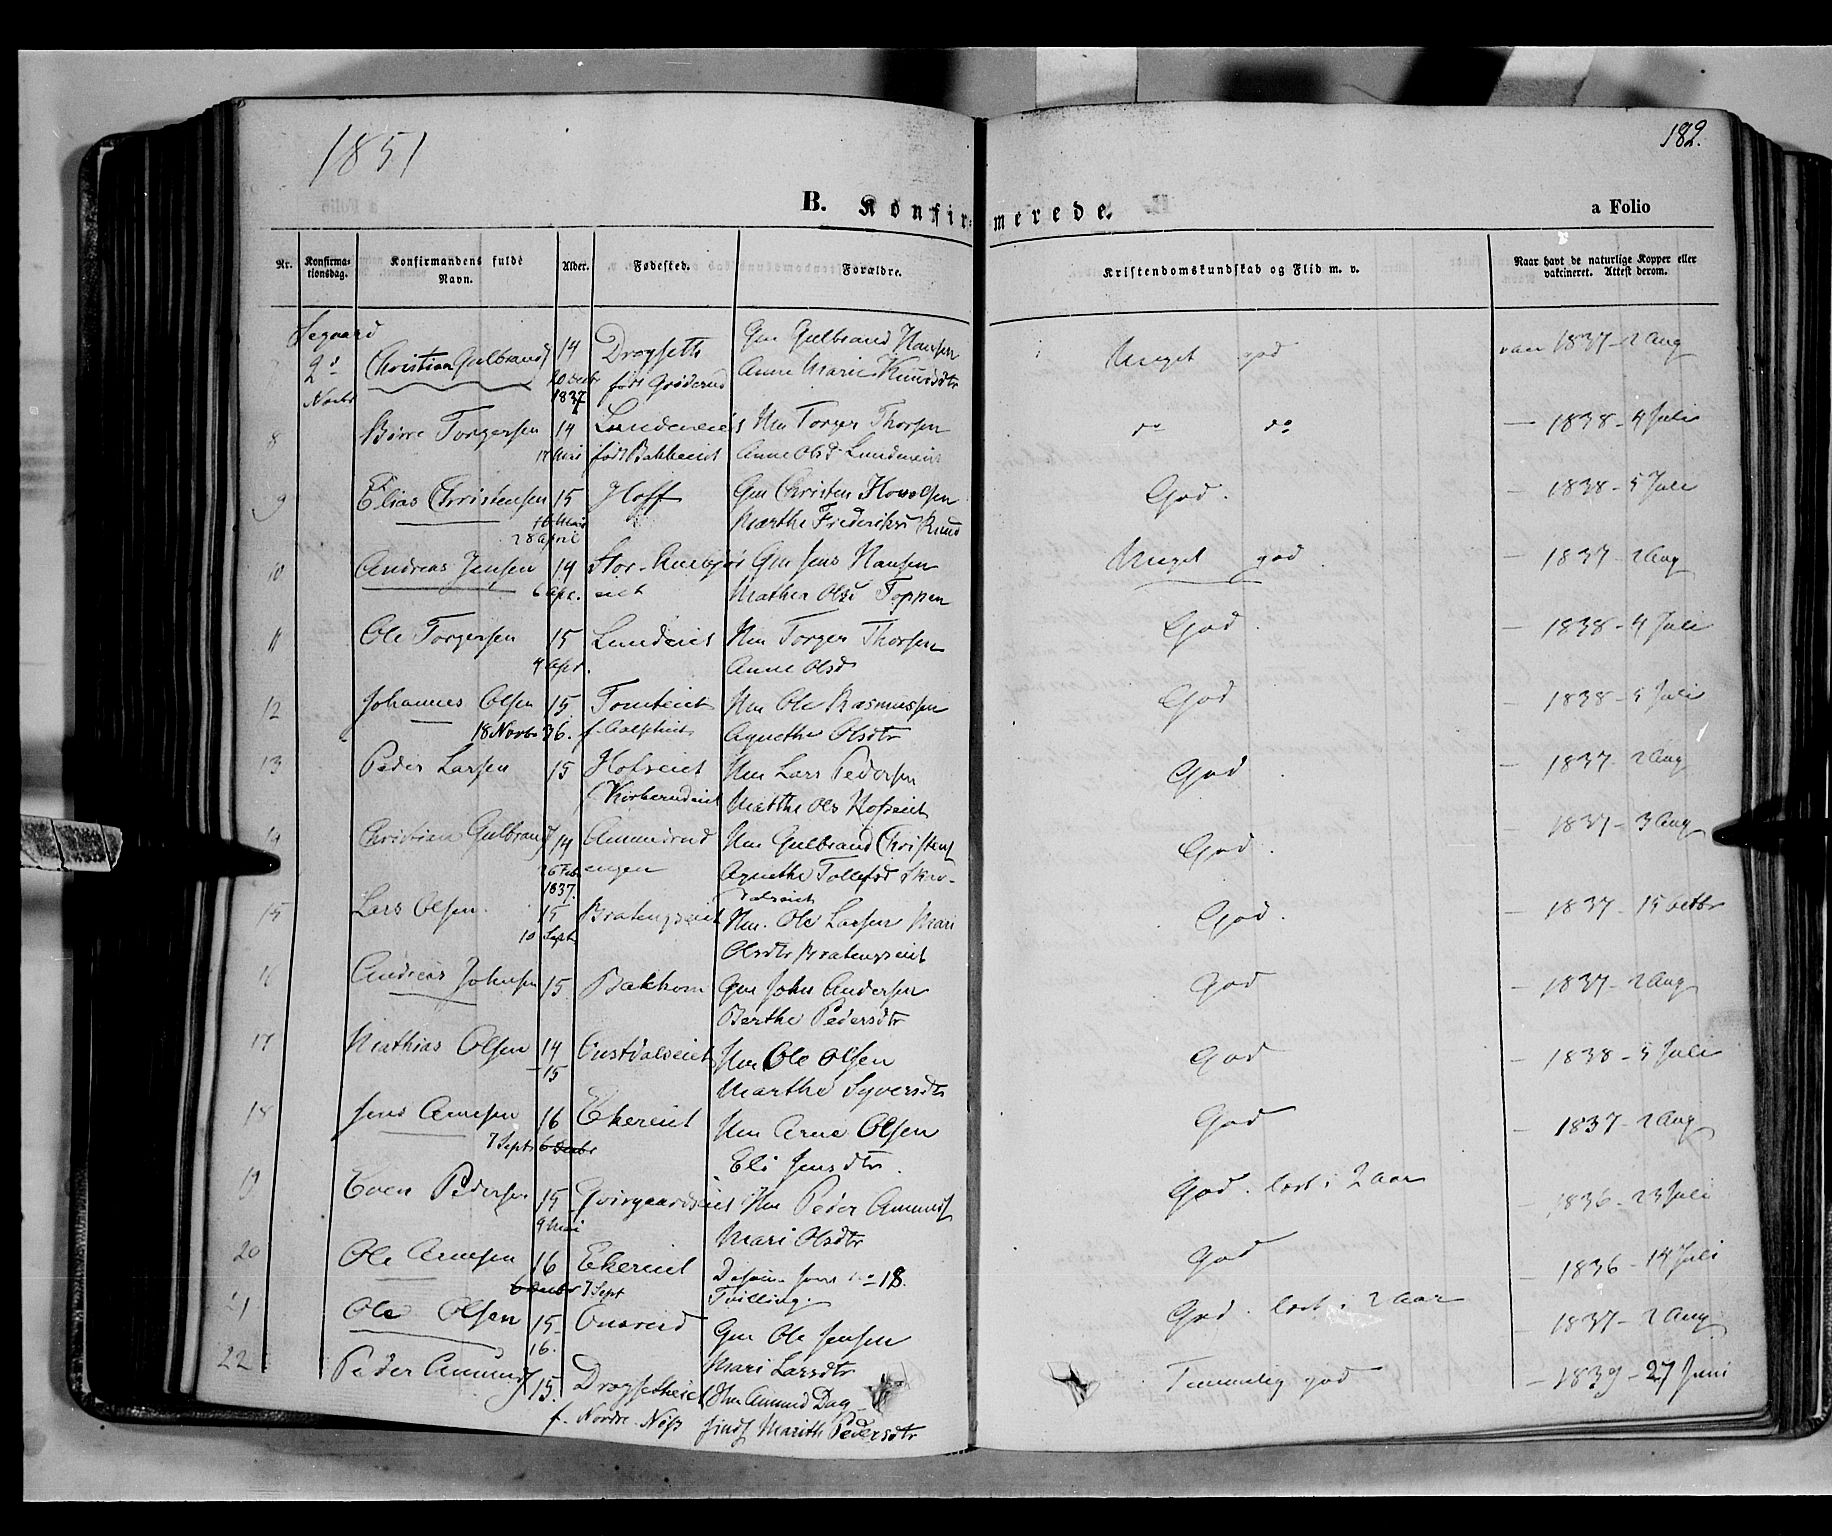 1851
182.
B. Konfirmerede.
a Folio
Nr. Konfirmationsdag. Konfirmandens fulde Navn. Alder. Fødested. Forældre. Kristendomskundskab og Flid m. v. Naar havt de naturlige Kopper eller vakcineret. Attest derom.
Segaard
7 2d Novbr Christian Gulbrands 14 Drogseth Gm Gulbrand Hansen Meget god vacc 1837 - 2 Aug
20 Decbr 1837 født Grøderud Anne Marie Knudsdtr
8 Børre Torgersen 14 Lundeneiet Hm Torger Thorsen do do — 1838 - 4 Juli
17 Mai født Bakkeeiet Anne Olsd Lundeneiet
9 Elias Christensen 15 Hoff Gm Christen God. — 1838 - 5 Juli
28 April Marthe Frederiksd
10 Andreas Jensen 14 Stor- Gm Jens Hansen Meget god — 1837 - 2 Aug
6 Apr. eiet Mathea Olsd Toppen
11 Ole Torgersen 15 Lundeiet Hm Torger Thorsen God. — 1838 - 4 Juli
4 Apr. Anne Olsd
12 Johannes Olsen 15 Tomteiet Hm Ole Rasmussen God — 1838 - 5 Juli
18 Novbr 36. f. Agnethe Olsdtr
13 Peder Larsen 15 Hofseiet Hm Lars Pedersen God. — 1837 - 2 Aug
f. Marthe Ols Hofseiet
14 Christian Gulbrands 14 Amundrud Hm Gulbrand Christens God. 1837 - 3 Aug
26 Feb. 1837. engen Agnethe Tollefsd
15 Lars Olsen. 15 Bratengseiet Hm. Ole Larsen Mari God. — 1837 - 15 Octbr
10 Sept Olsdtr Bratengseiet
16 Andreas Johnsen 15 Bakkom Gm John Andersen God — 1837 - 2 Aug
Berthe Pedersdtr
17 Mathias Olsen 14 - 15 Onstdalseiet Hm Ole Olsen God — 1838 - 5 Juli
Marthe Syversdtr
18 Jens Arnesen 16 Ekereiet Hm Arne Olsen God — 1837 - 2 Aug
7 Sept 6 Decbr Eli Jensdtr.
19 Even Pedersen 15 Hm Peder Amunds God. læst i 2 aar — 1836 - 23 Juli
9 Mai Mari Olsdtr
20 Ole Arnesen 16 Ekereiet Jens no 18. God — 1836 - 14 Juli
6 Decbr 7 Sept Tvilling.
21 Ole Olsen 15- Onsreid Gm Ole Jensen God. læst i 2 aar — 1837 - 2 Aug
16. Mari Larsdtr
22 Peder Amunds 15. Drogsetheiet Hm Amund Dag- Temmelig god — 1839 - 27 Juni
f. Nordre Ness finds Marith Pedersdtr